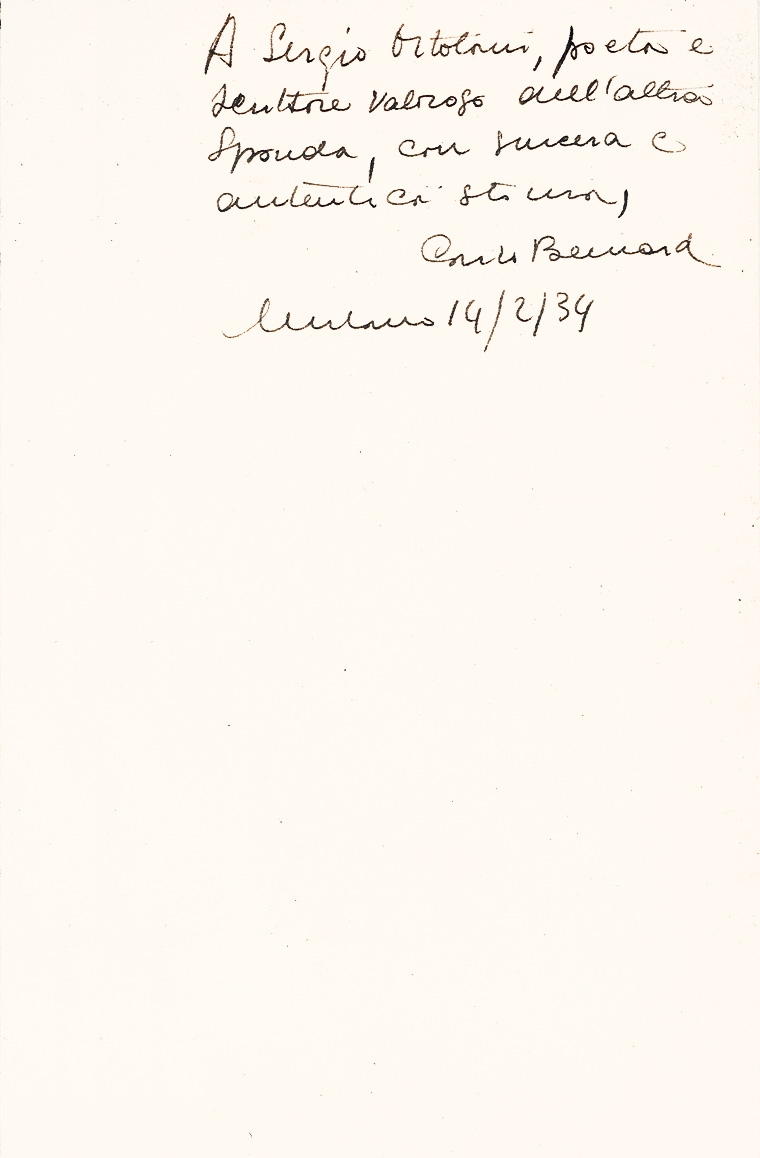 A Sergio Ortolani, poeta e
scrittore valoroso dell'altra
sponda, con sincera e
autentica stima,
Carlo Bernard
Milano 14/2/34